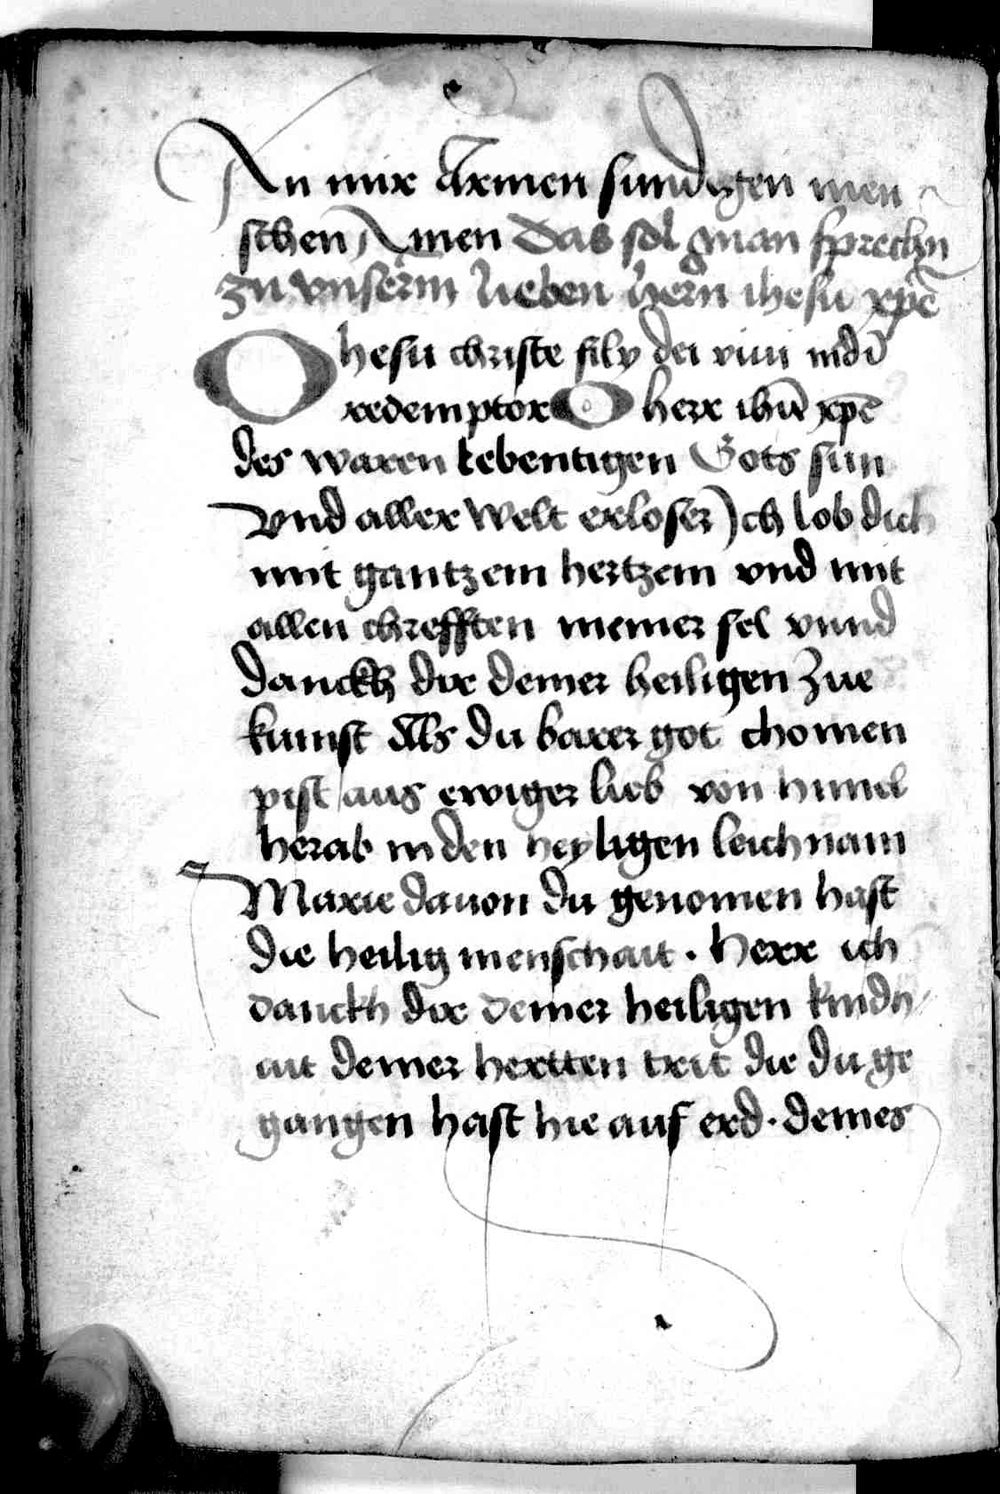 An mir Armen sundigen men
schen Amen Das sol man sprechn
zu vnserm lieben hern ihesu xpē
O hesu christe fily dei viui mdi̅
redemptor O herr ihū xpē
des waren lebentigen Gots sun
Vnd aller welt erloser Ich lob dich
mit gantzem hertzem vnd mit
allen chrefften meiner sel vnnd
danckh dir deiner heiligen Zue
kunst Als du barer got chomen
pist aus ewiger lieb von himel
herab in den heyligen leichnam
Marie dauon du genomen hast
die heilig menschait . Herr ich
danckh dir deiner heiligen kindh
ait deiner hertten trit die du ge
gangen hast hie auf erd . deines